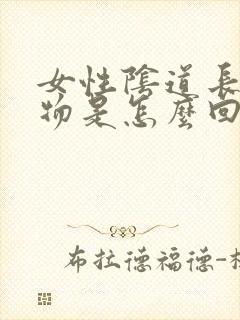 女性陰道長
物是怎麼回
布拉德福德-